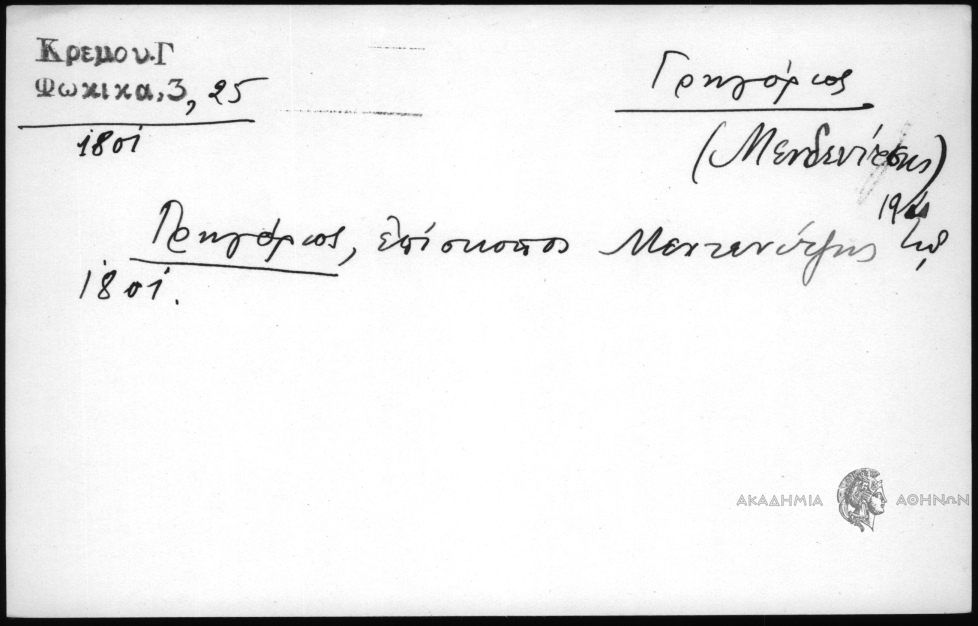 Κρεμου.Γ
Φωκικα,3, 25
1801
Γρηγόριος
(Μενδενίτσης)
Γρηγόριος, ἐπίσκοπος Μενδενίτζης
1801.
ΑΚΑΔΗΜΙΑ ΑΘΗΝΩΝ